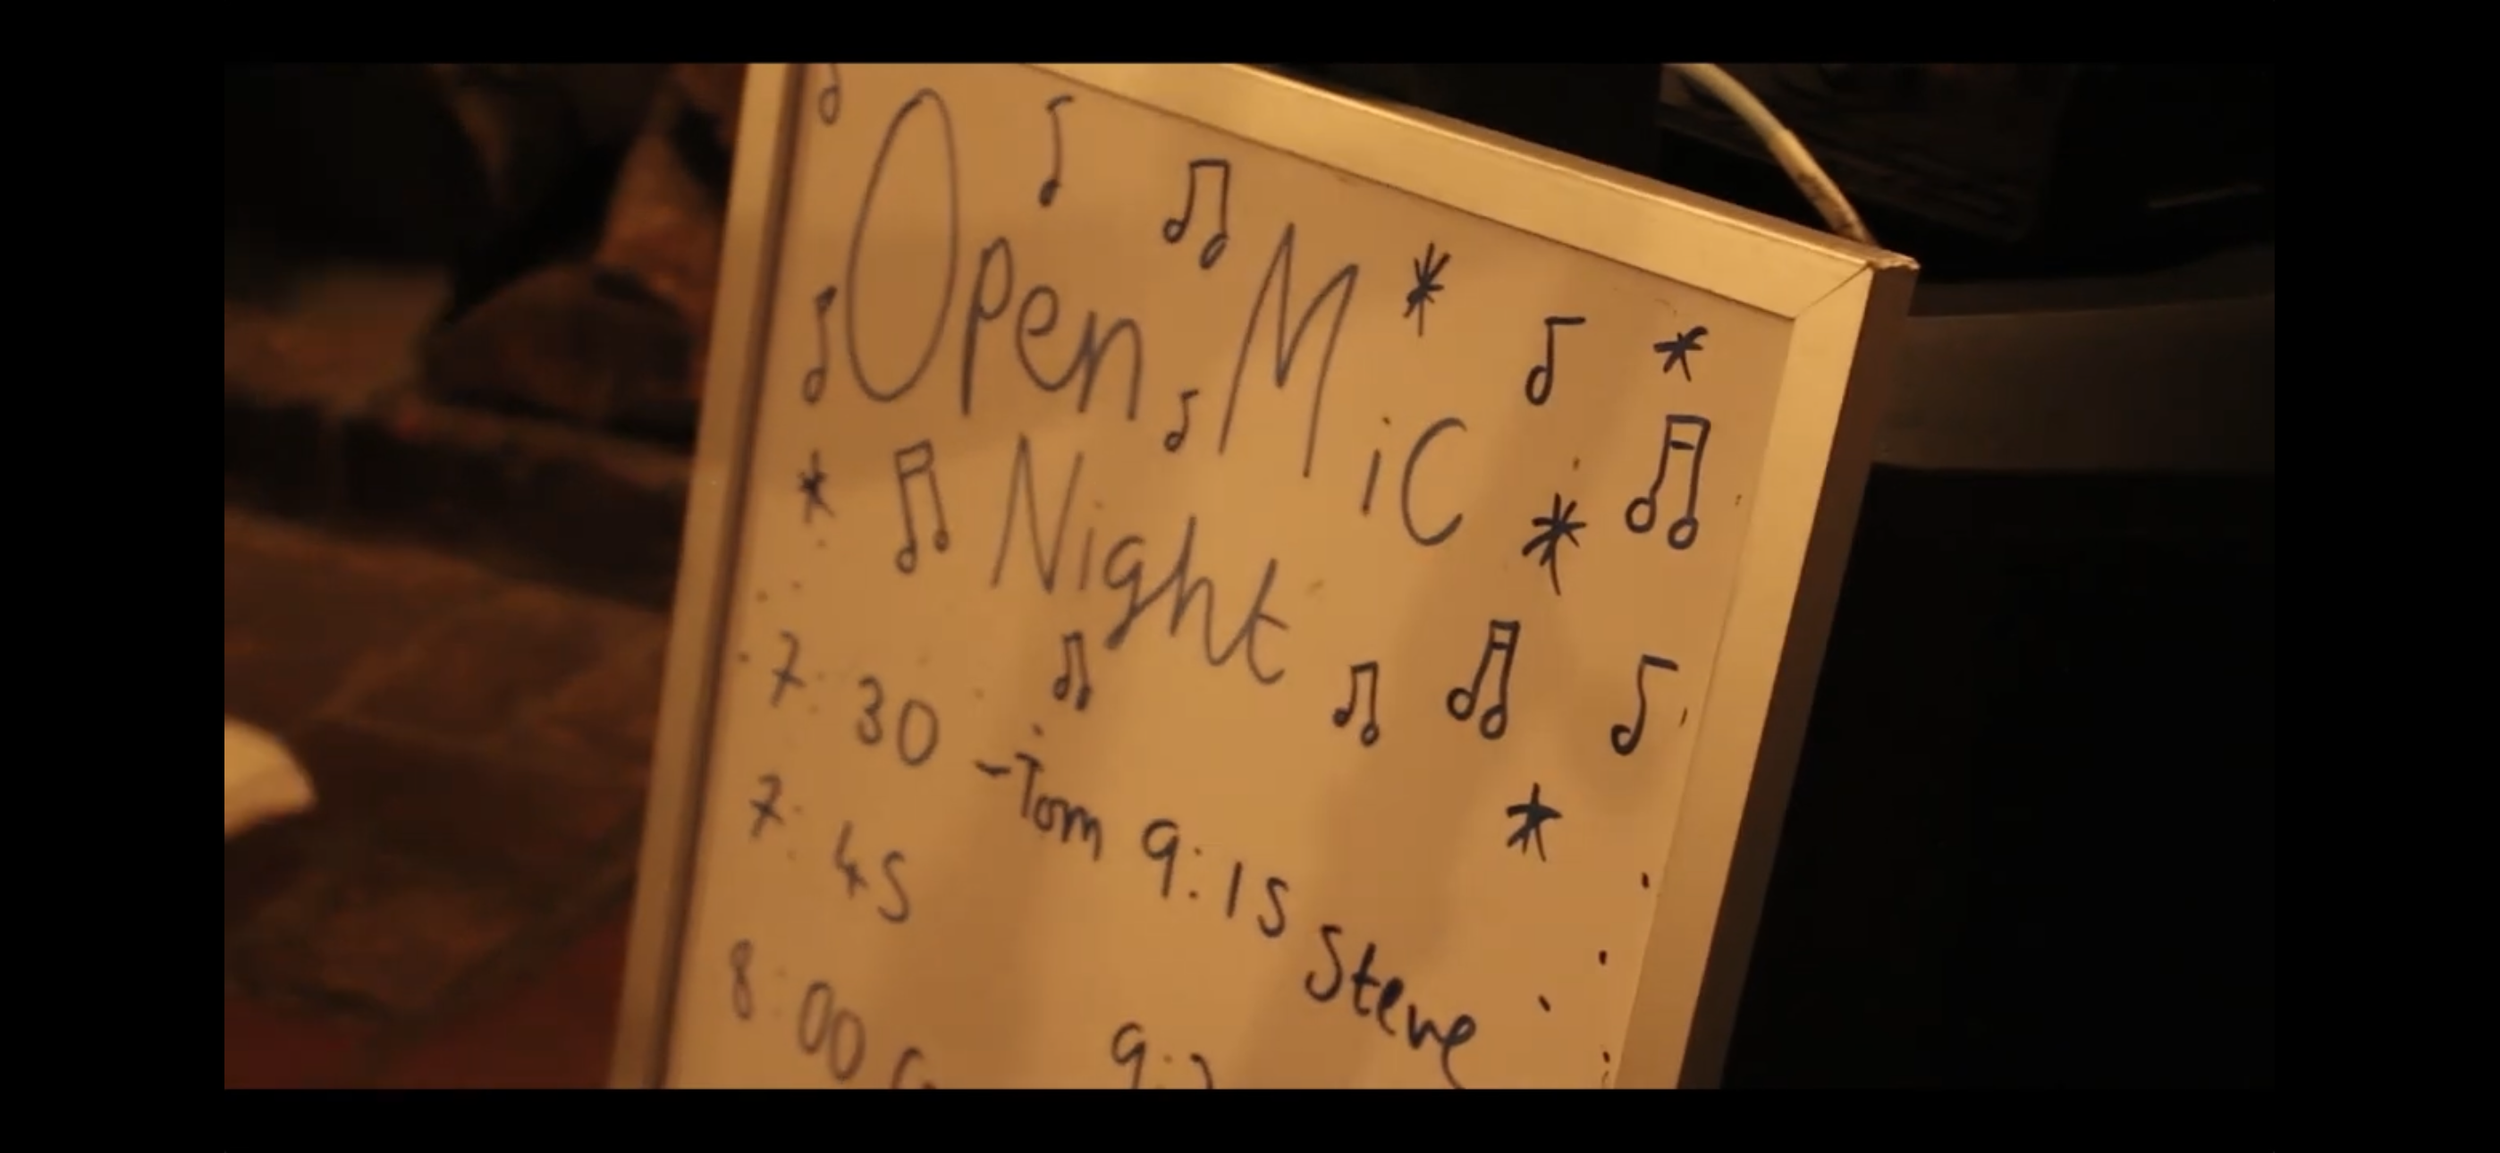 Open Mic
Night
7:30
7:45 -Tom 9:15 Steve
8:00